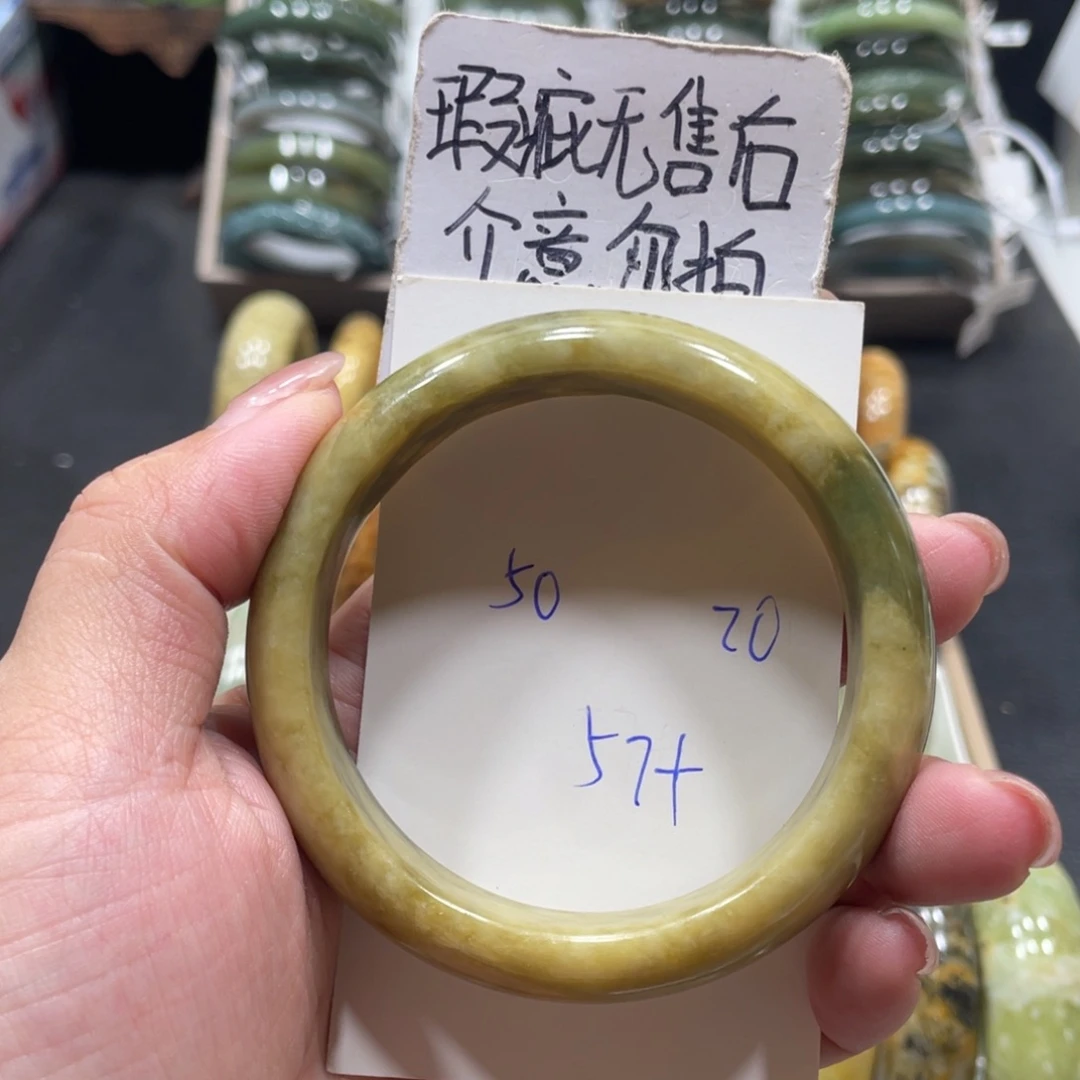 瑕疵无售后
介意勿拍
50
20
57+